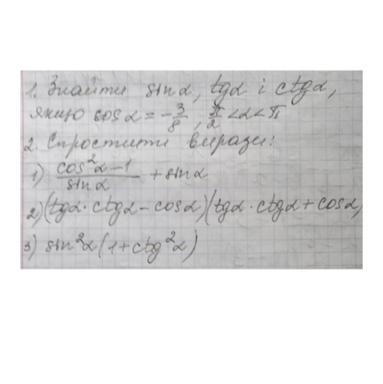 1. Знайти sin α, tg α і ctg α,
якщо cos α = -3/8, π/2 < α < π
2. Спростити вирази:
1) (cos²α - 1)/(sin α) + sin α
2) (tg α · ctg α - cos α)(tg α · ctg α + cos α)
3) sin²α (1 + ctg²α)